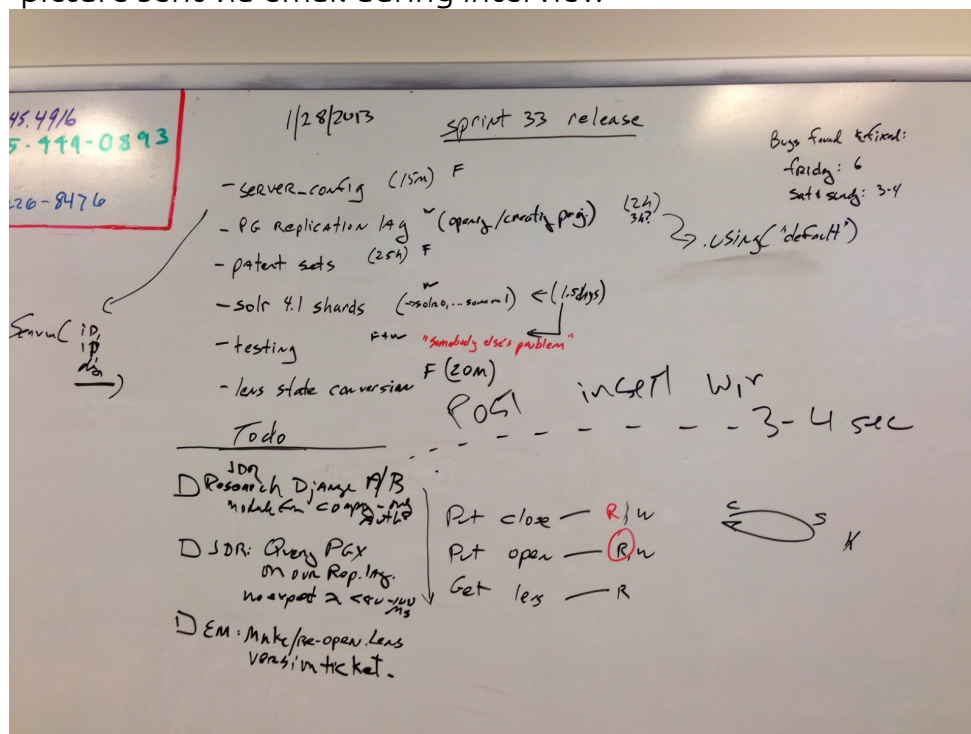 picture sent via email during interview
45.4916
5-444-0893
226-8476
1/28/2013
sprint 33 release
Bugs found & fixed:
friday: 6
sat & sundy: 3-4
- SERVER_config (15m) F
- PG Replication lag w (opening/creating proj.) (2h) 3h?
.using("default")
- patent sets (25h) F
- solr 4.1 shards w (1.5days)
- testing F+w "somebody else's problem"
- lens state conversion F (20m)
Server( id,
ip,
)
Post insert w,r
3-4 sec
Todo
JDR
Research Django A/B
JDR: Query PGX
on our Rep. lag.
EM: Make/Re-open Lens
version ticket.
Put close — R, w
Put open — R, w
Get lens — R
C S